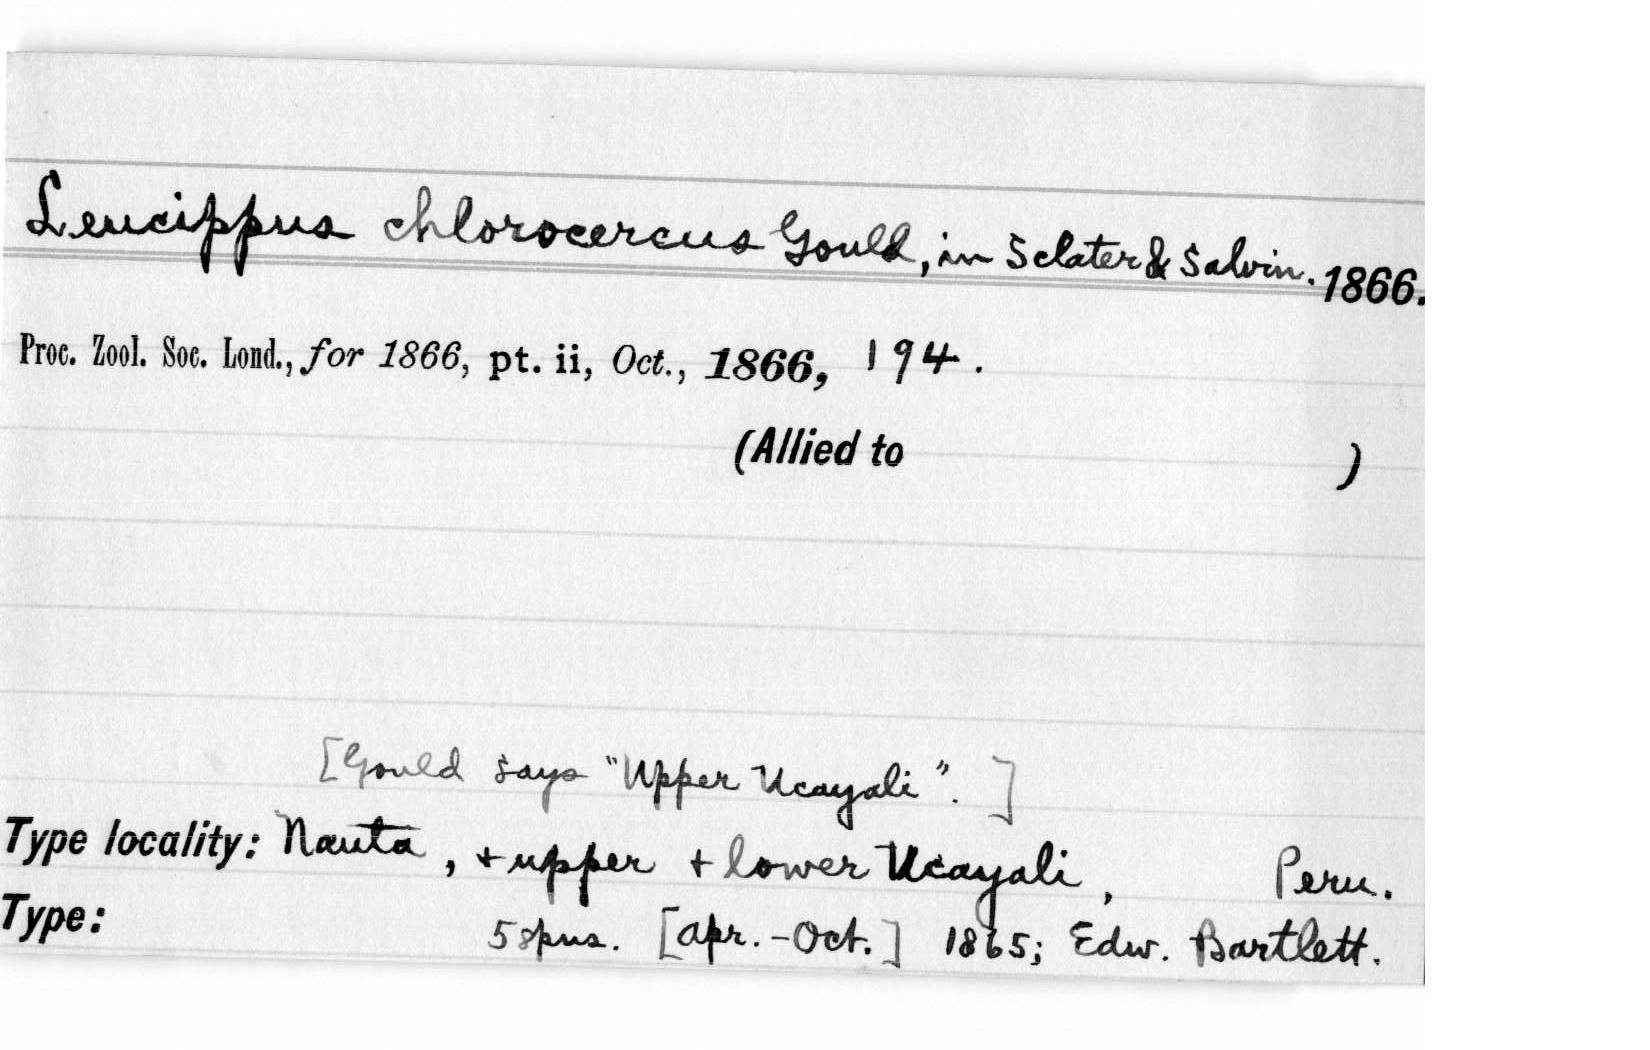 Leucippus chlorocercus Gould, in Sclater & Salvin. 1866.
Proc. Zool. Soc. Lond., for 1866, pt. ii, Oct., 1866, 194.
(Allied to )
[Gould says "Upper Ucayali".]
Type locality: Nauta, + upper + lower Ucayali, Peru.
Type: 5 spns. [Apr.-Oct.] 1865; Edw. Bartlett.